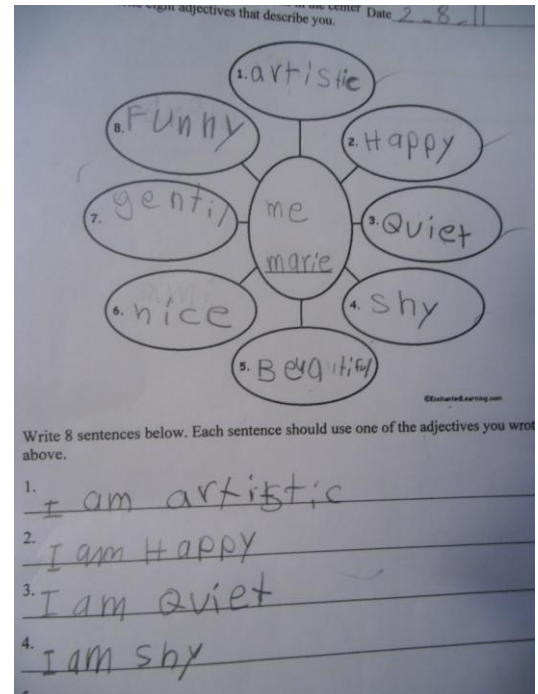 eight adjectives that describe you.
in the center Date 2-8-11
1. artistic
2. Happy
3. Quiet
4. shy
5. Beautiful
6. nice
7. gentil
8. Funny
me
marie
©EnchantedLearning.com
Write 8 sentences below. Each sentence should use one of the adjectives you wrot
above.
1. I am artistic
2. I am Happy
3. I am Quiet
4. I am shy